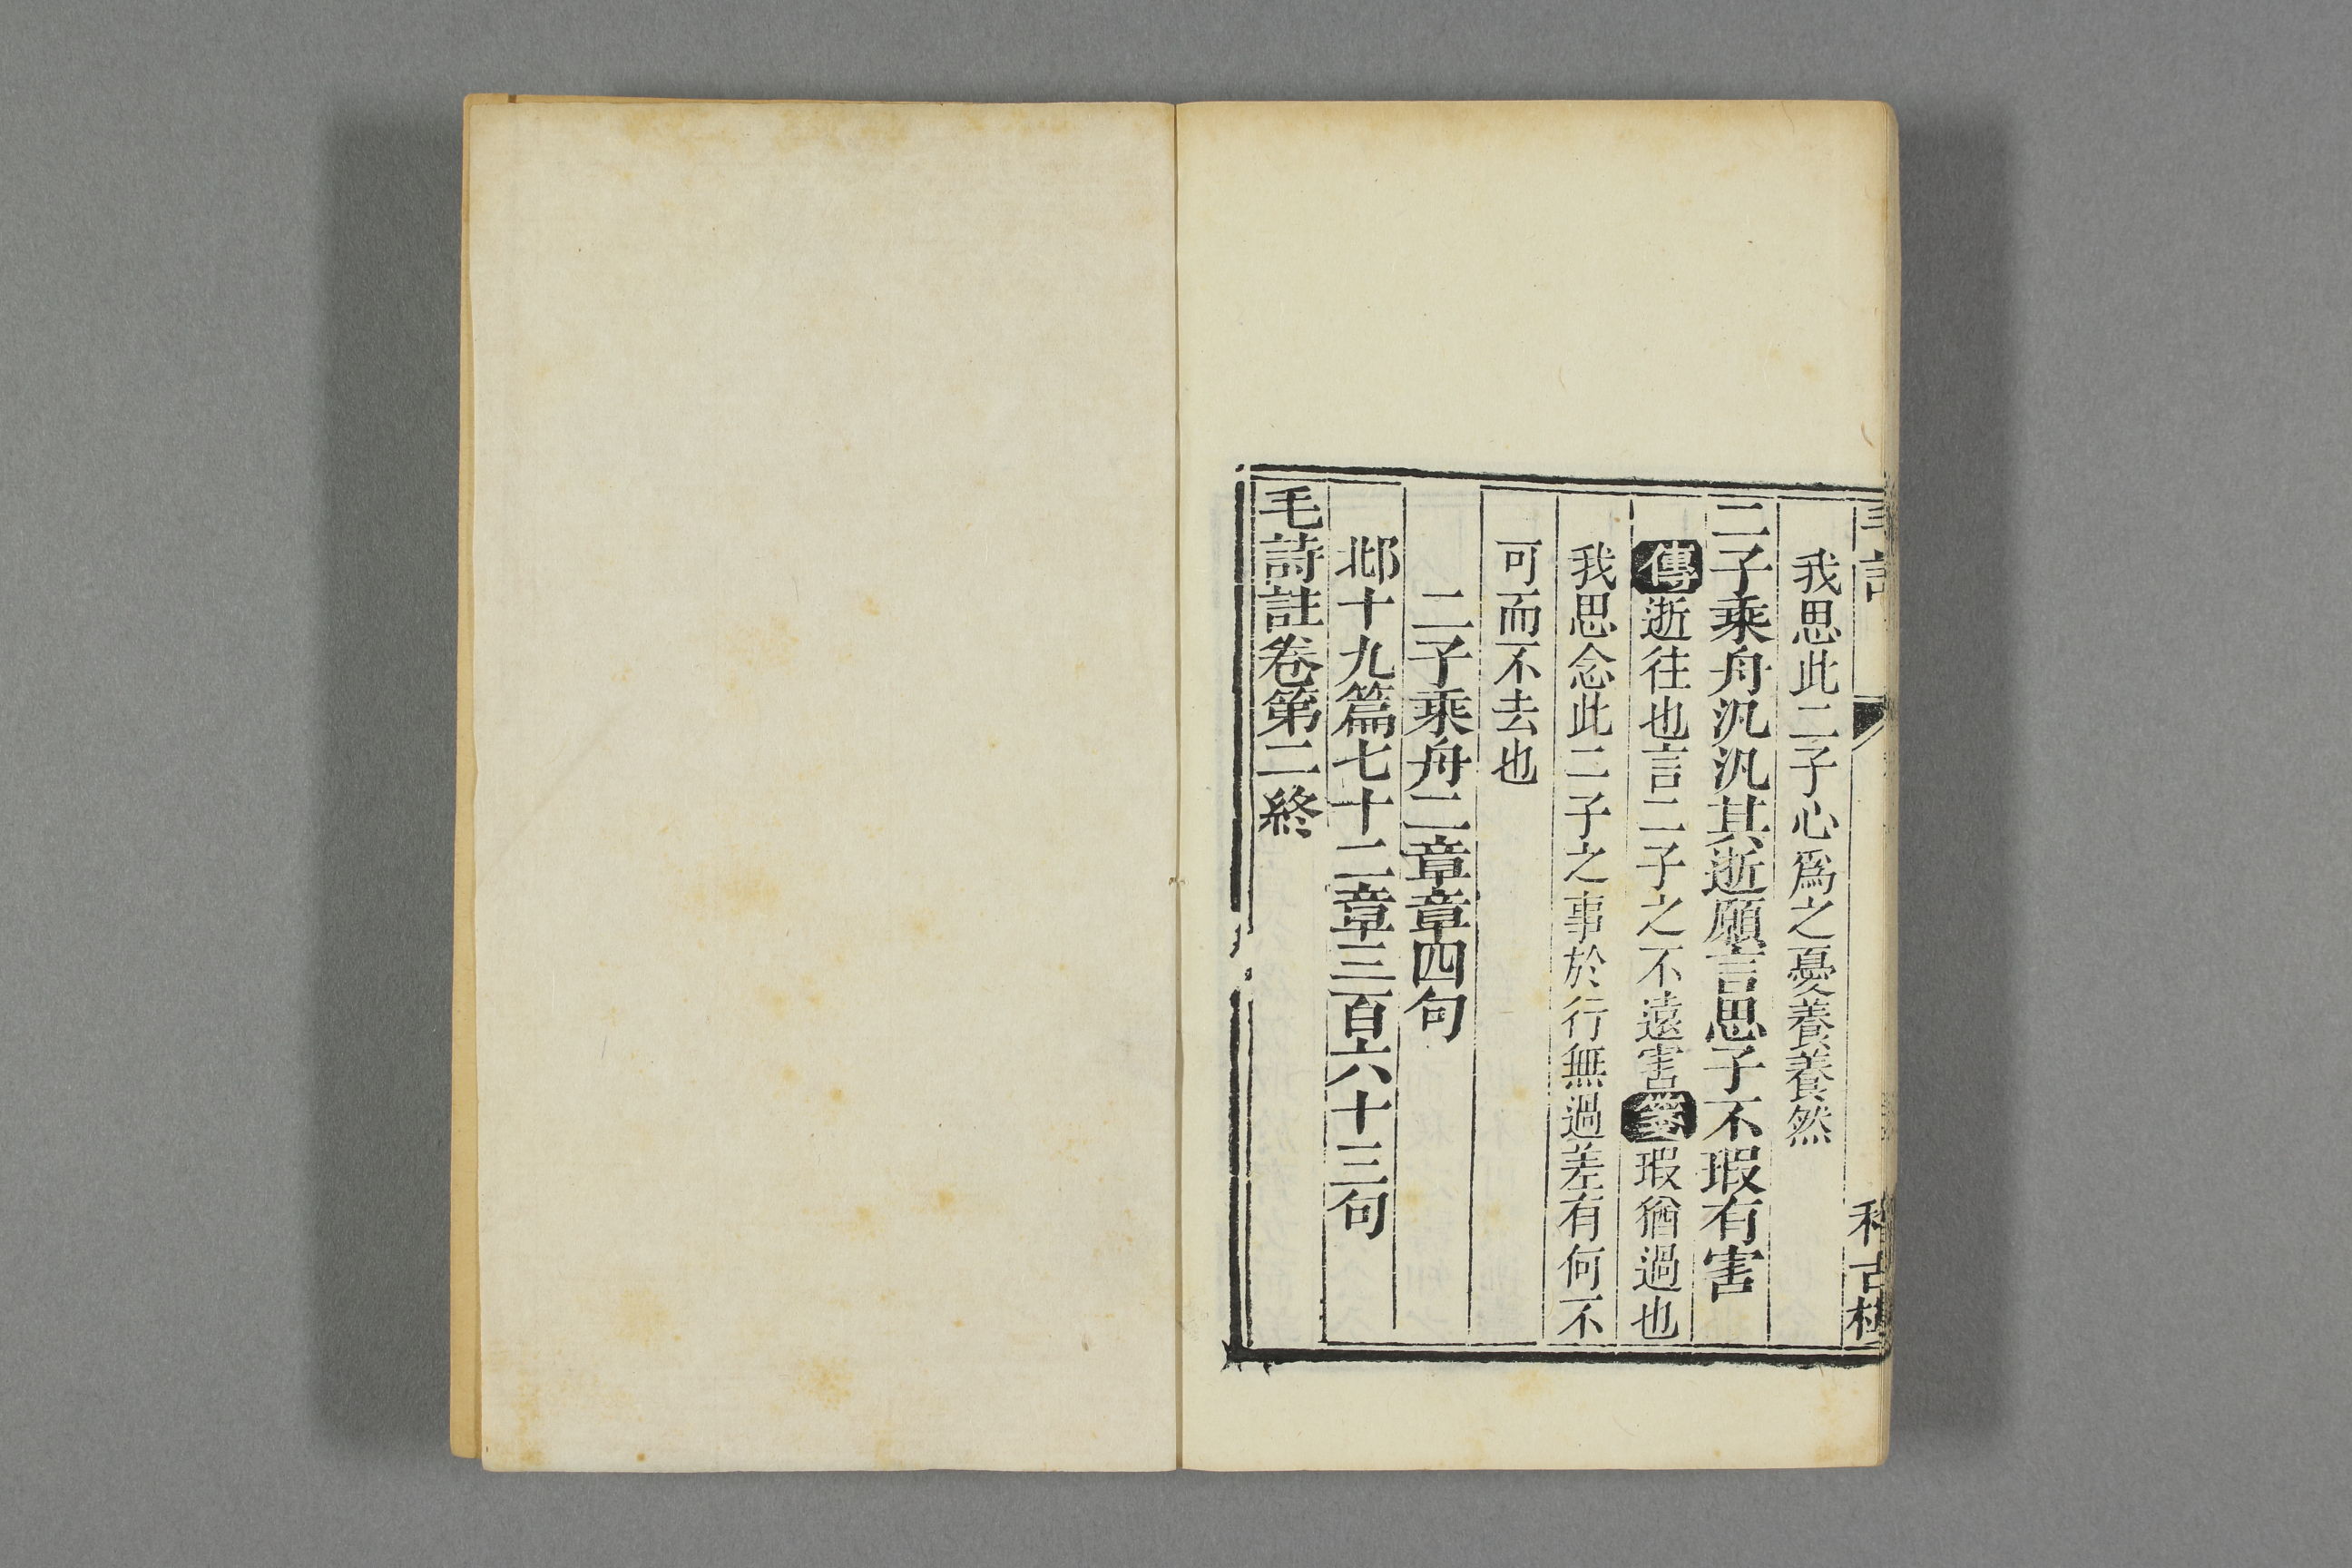 我思此二子心爲之憂養養然
二子乘舟汎汎其逝願言思子不瑕有害
傳逝往也言二子之不遠害箋瑕猶過也
我思念此二子之事於行無過差有何不
可而不去也
二子乘舟二章章四句
邶十九篇七十二章三百六十三句
毛詩註卷第二終